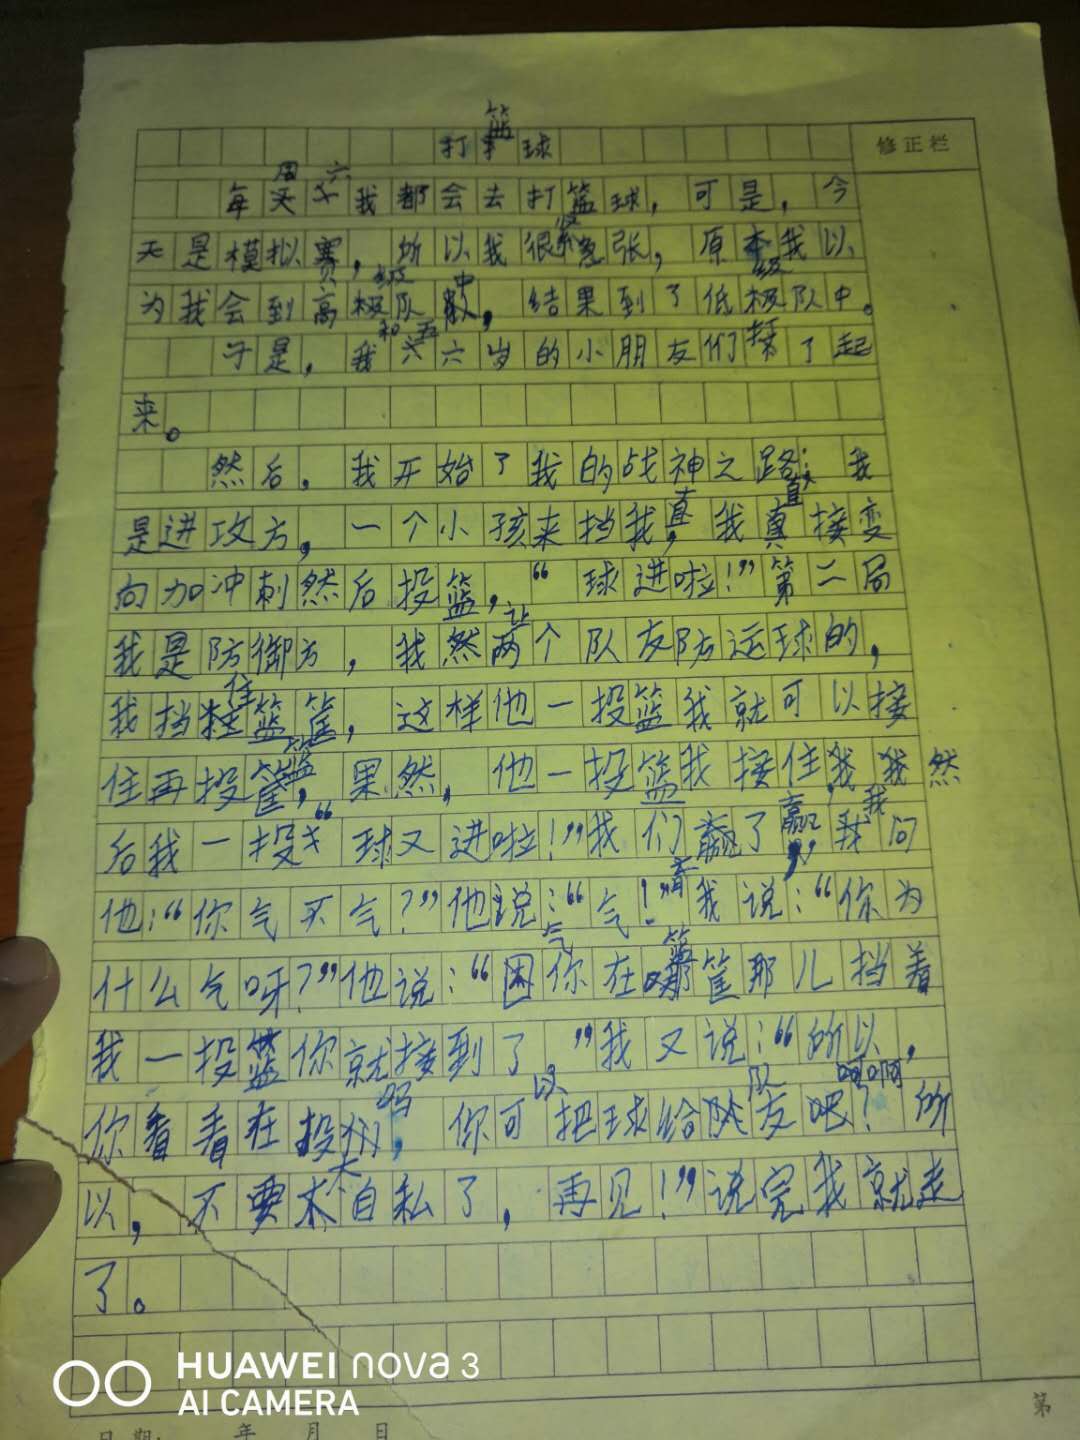 打篮球
修正栏
每周六我都会去打篮球，可是，今
天是模拟赛，所以我很紧张，原本我以
为我会到高级队中，结果到了低级队中。
于是，我和五六岁的小朋友们打了起
来。
然后，我开始了我的战神之路；我
是进攻方，一个小孩来挡我，我直接变
向加冲刺然后投篮，“球进啦！”第二局
我是防御方，我让两个队友防运球的，
我挡住篮筐，这样他一投篮我就可以接
住再投篮，果然，他一投篮我接住，我然
后我一投“球又进啦！”我们赢了，我问
他：“你气不气？”他说：“气！”我说：“你为
什么气呀？”他说：“因你在篮筐那儿挡着
我一投篮你就接到了。”我又说：“所以，
你看着在投吗，你可以把球给队友呵啊？所
以，不要太自私了，再见！”说完我就走
了。
HUAWEI nova 3
AI CAMERA
日期： 年 月 日
第